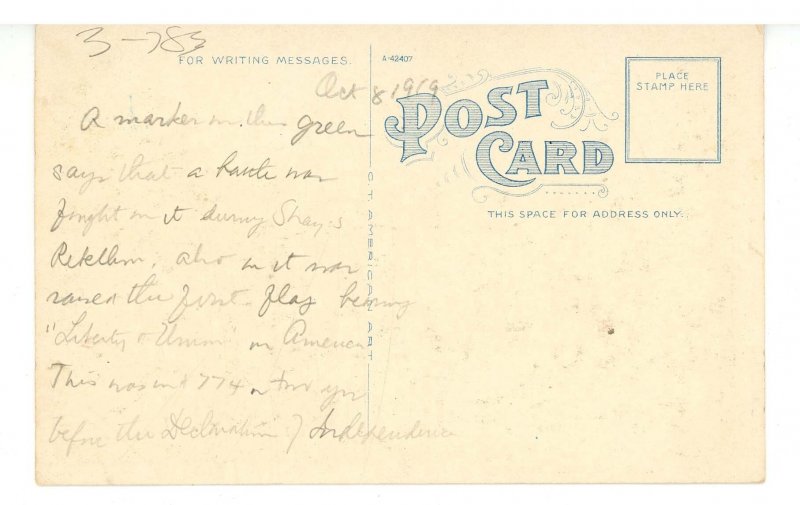 3-783
FOR WRITING MESSAGES.
A-42407
Oct 8 1919
POST CARD
PLACE
STAMP HERE
THIS SPACE FOR ADDRESS ONLY.
C. T. AMERICAN ART
A marker on this green
says that a battle was
fought on it during Shay's
Rebellion, also on it was
raised the first flag bearing
"Liberty & Union" in America
This was in 1774 or two yrs
before the Declaration of Independence